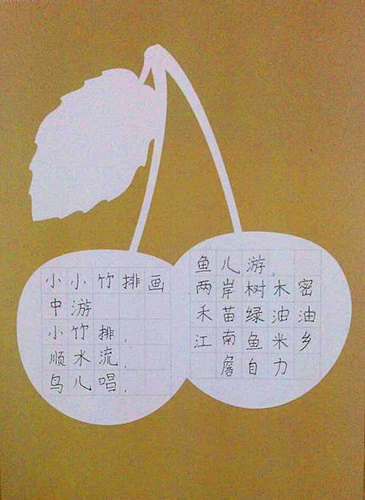 小小竹排画
中游
小竹排，
顺水流，
鸟儿唱，
鱼儿游。
两岸树木密
禾苗绿油油
江南鱼米乡
自力